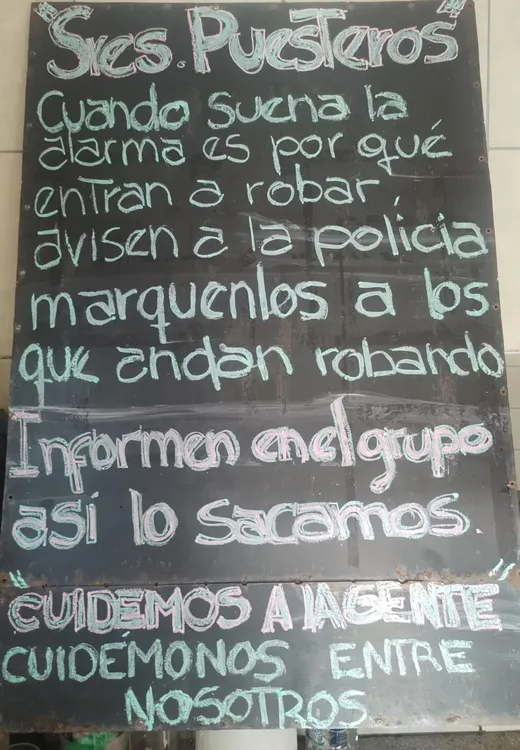 "Sres. Puesteros"
Cuando suena la
alarma es por qué
entran a robar
avisen a la policía
marquenlos a los
que andan robando
Informen en el grupo
así lo sacamos.
"CUIDEMOS A LA GENTE"
CUIDÉMONOS ENTRE
NOSOTROS